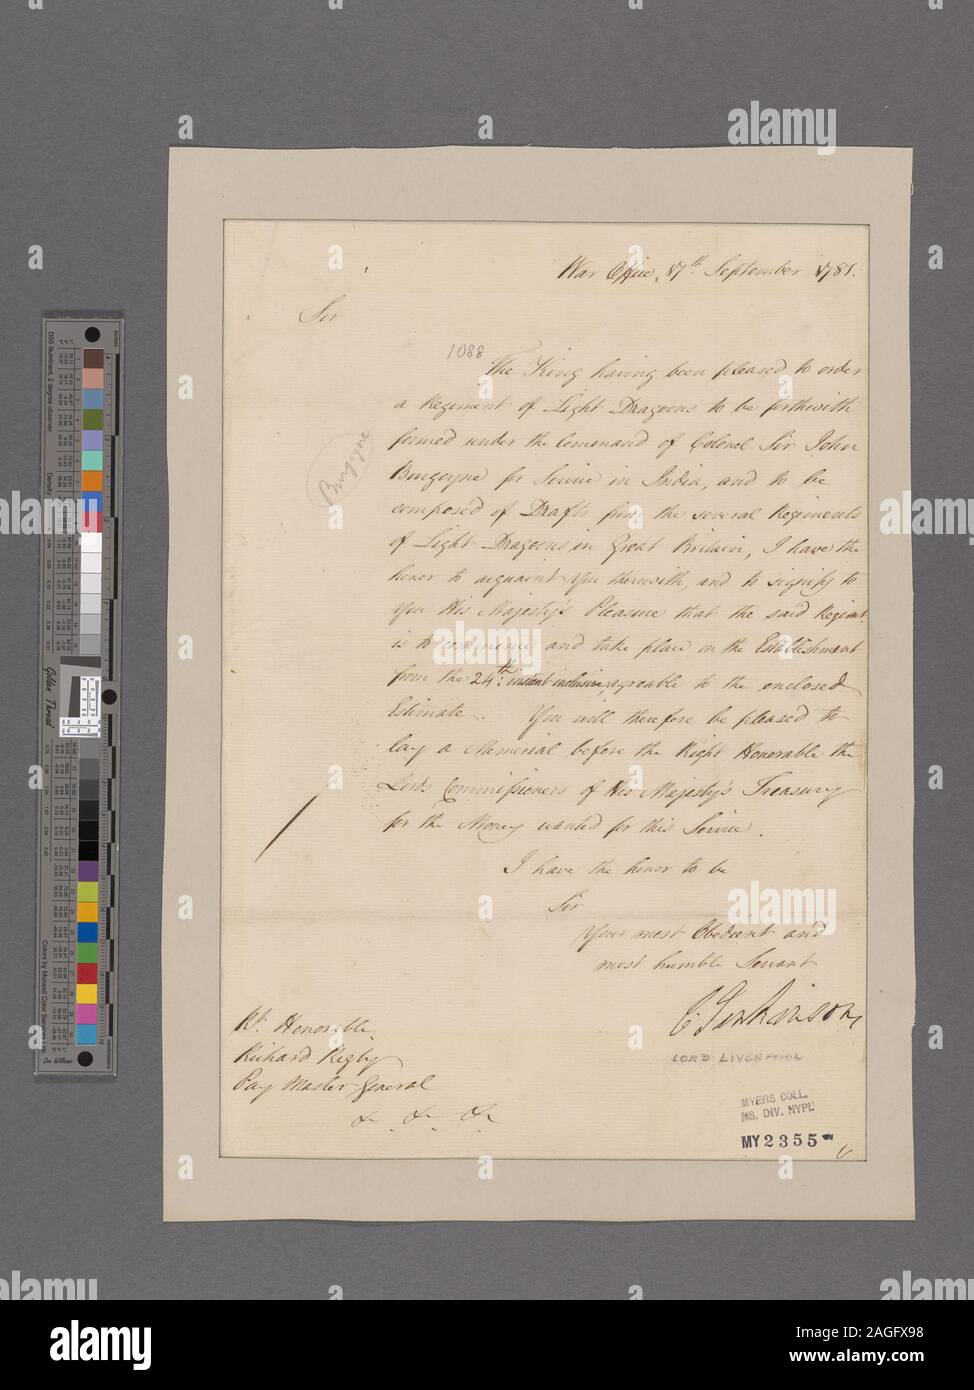 War Office, 17th September 1781.
Sir
1088
The King having been pleased to order
a Regiment of Light Dragoons to be forthwith
formed under the Command of Colonel Sir John
Burgoyne for Service in India, and to be
composed of Drafts from the several Regiments
of Light Dragoons in Great Britain, I have the
honor to acquaint you therewith, and to signify to
you His Majesty's Pleasure that the said Regimt.
is to commence and take place on the Establishment
from the 24th: instant inclusive, agreable to the enclosed
Estimate. You will therefore be pleased to
lay a Memorial before the Right Honorable the
Lords Commissioners of His Majesty's Treasury
for the Money wanted for this Service.
I have the honor to be
Sir
Your most Obedient and
most humble Servant
C Jenkinson
LORD LIVERPOOL
Rt. Honorable
Richard Rigby
Pay Master General
&c. &c. &c.
Burgoyne
MYERS COLL.
MS. DIV. NYPL
MY 2355
Golden Thread
D50 Illuminant, 2 degree observer
Density
Colors by Munsell Color Services Lab
Don Williams
inches
centimeters
alamy
alamy
Image ID: 2AGFX98
www.alamy.com